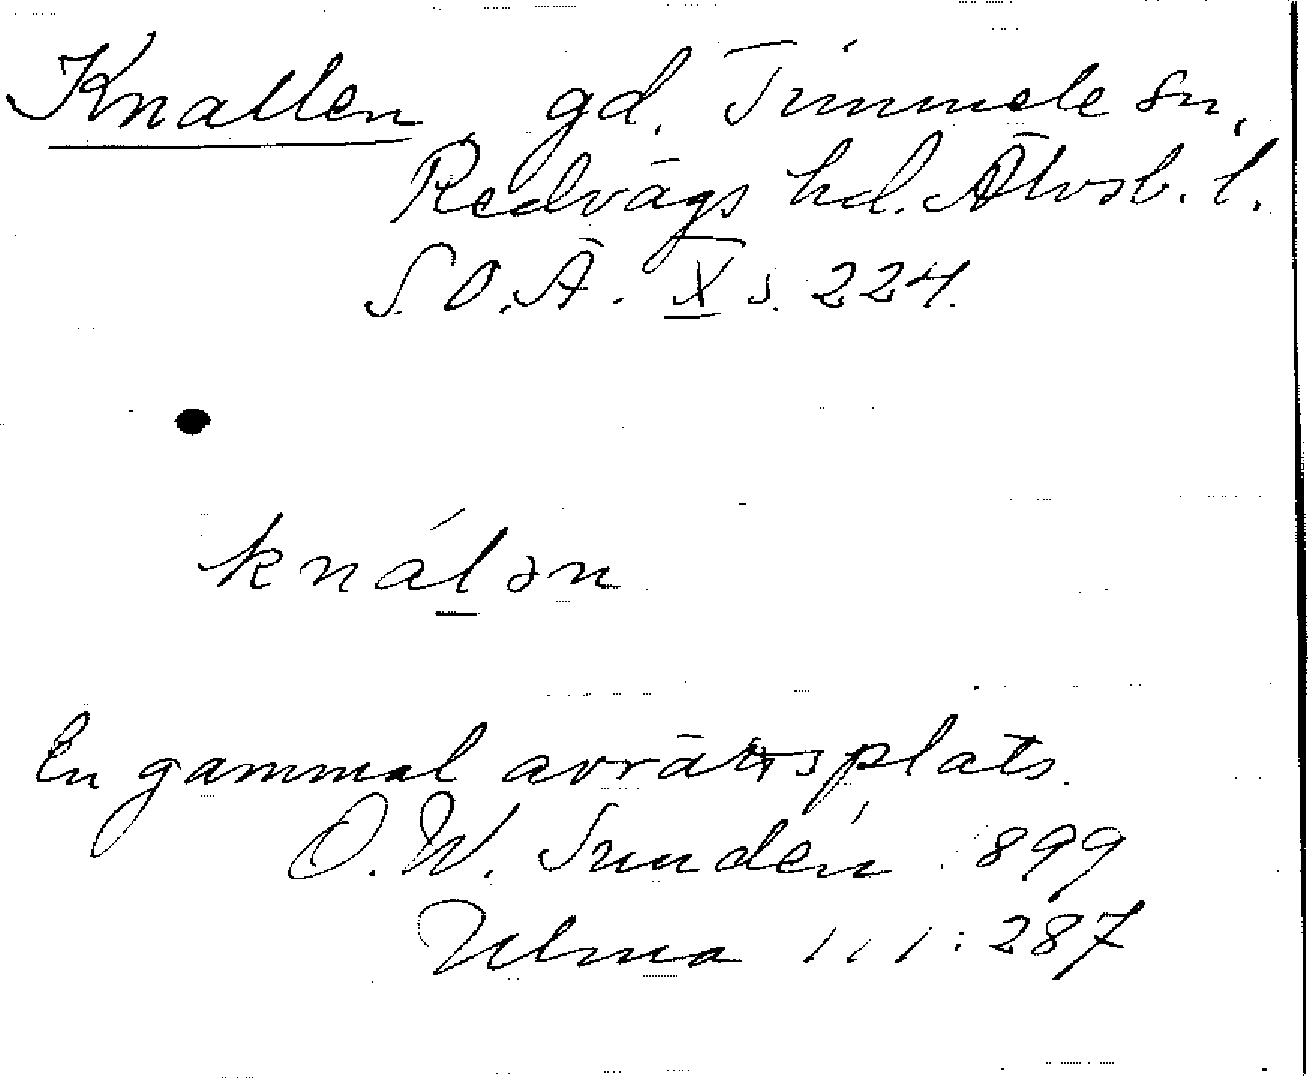 Knallen gd. Timmele sn,
Redvägs hd. Älvsb. l.
S.O.Ä. X s. 224.
knálən
En gammal avrättsplats.
O.W. Sundén 899
Ulma 111:287